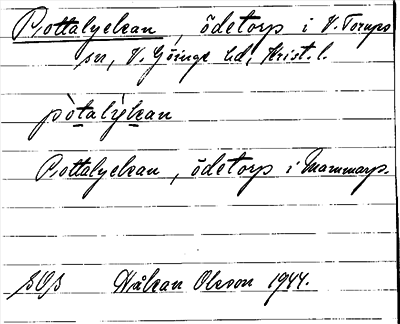 Pottalyckan, ödetorp i V. Torups
sn, V. Göinge hd, Krist. l.
pòtalỳkan
Pottalyckan, ödetorp i Mammarp.
SOS Håkan Olsson 1944.